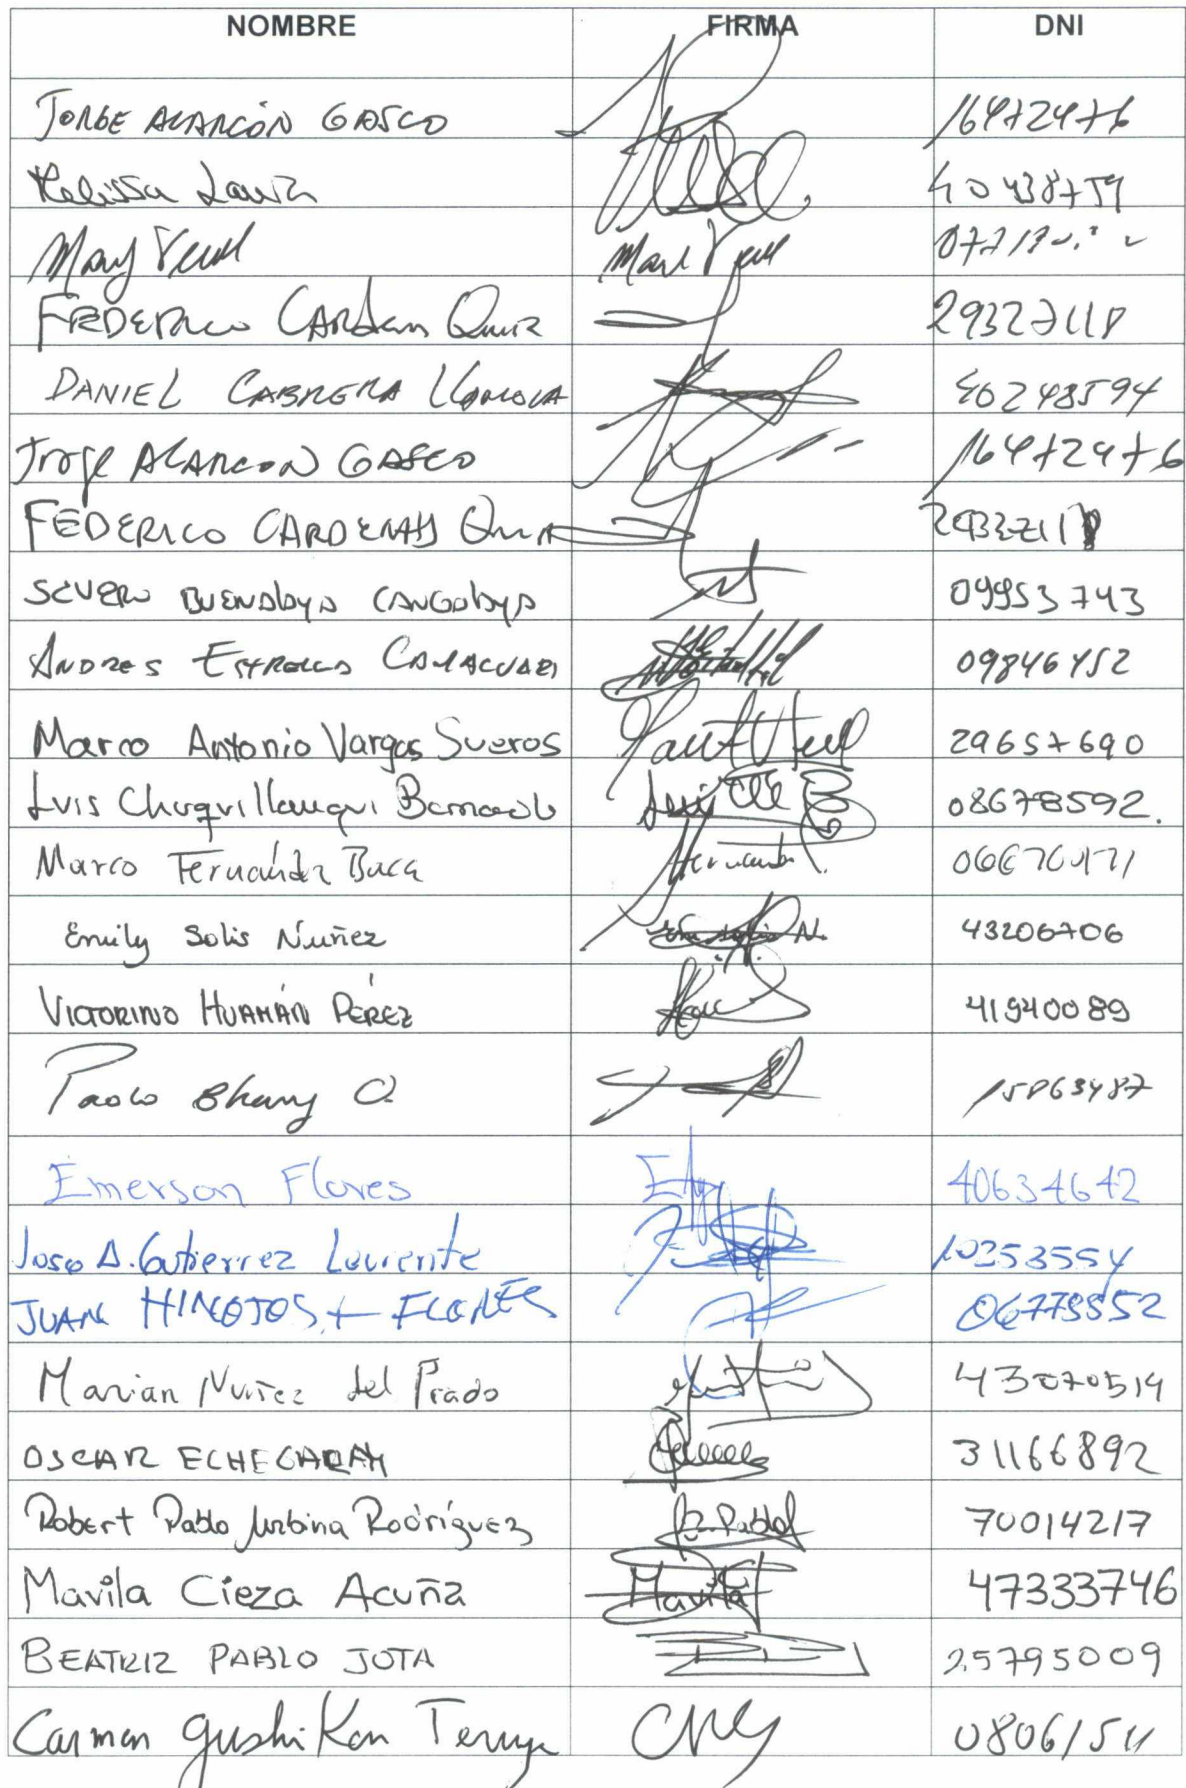 NOMBRE FIRMA DNI
JORGE ALARCÓN GASCO 16472476
Melissa 40438759
Mary
FEDERICO CARDENAS 29327118
DANIEL CABRERA 40248594
Jorge ALARCON GASCO 16472476
FEDERICO CARDENAS 29327118
SEVERO BUENDÍA 09953743
ANDRES 09846452
Marco Antonio Vargas Sueros 29657690
Luis Chuquillanqui 08678592.
Marco Fernández Baca
Emily Solis Nuñez 43206706
VICTORINO HUAMÁN PÉREZ 41940089
Paolo 15863487
Emerson Flores 40634642
Jose A. Gutierrez 10353554
JUAN HINOJOSA FLORES 06778552
Marian Nuñez del Prado 43070514
OSCAR ECHEGARAY 31166892
Robert Pablo Urbina Rodríguez R. Pablo 70014217
Mavila Cieza Acuña Mavila 47333746
BEATRIZ PABLO JOTA 25795009
Carmen Gushiken Teruya